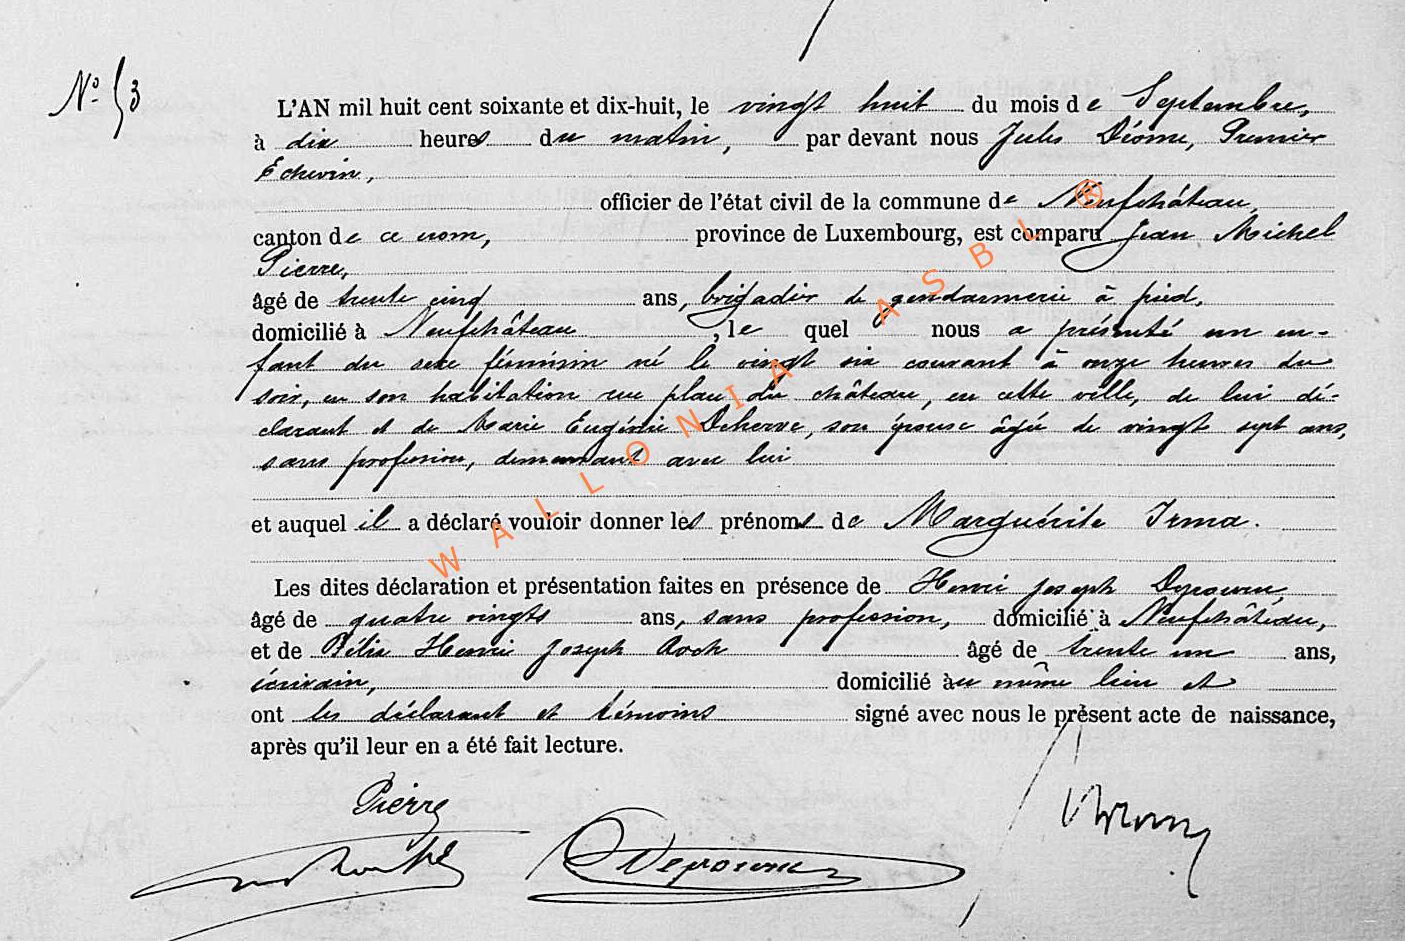 Nº 53
L'AN mil huit cent soixante et dix-huit, le vingt huit du mois de Septembre,
à dix heures du matin, par devant nous Jules Díome, Premier
Echevin,
officier de l'état civil de la commune de Neufchâteau,
canton de ce nom, province de Luxembourg, est comparu Jean Michel
Pierre,
âgé de trente cinq ans, brigadier de gendarmerie à pied,
domicilié à Neufchâteau, le quel nous a présenté un en-
fant du sexe féminin né le vingt six courant à onze heures du
soir, en son habitation rue place du château, en cette ville, de lui dé-
clarant et de Marie Eugénie Deherve, son épouse âgée de vingt sept ans,
sans profession, demeurant avec lui
et auquel il a déclaré vouloir donner les prénoms de Marguérite Irma.
Les dites déclaration et présentation faites en présence de Henri Joseph
âgé de quatre vingts ans, sans profession, domicilié à Neufchâteau,
et de Félix Henri Joseph âgé de trente un ans,
écrivain, domicilié au même lieu et
ont les déclarant et témoins signé avec nous le présent acte de naissance,
après qu'il leur en a été fait lecture.
Pierre
WALLONIA ASBL ®